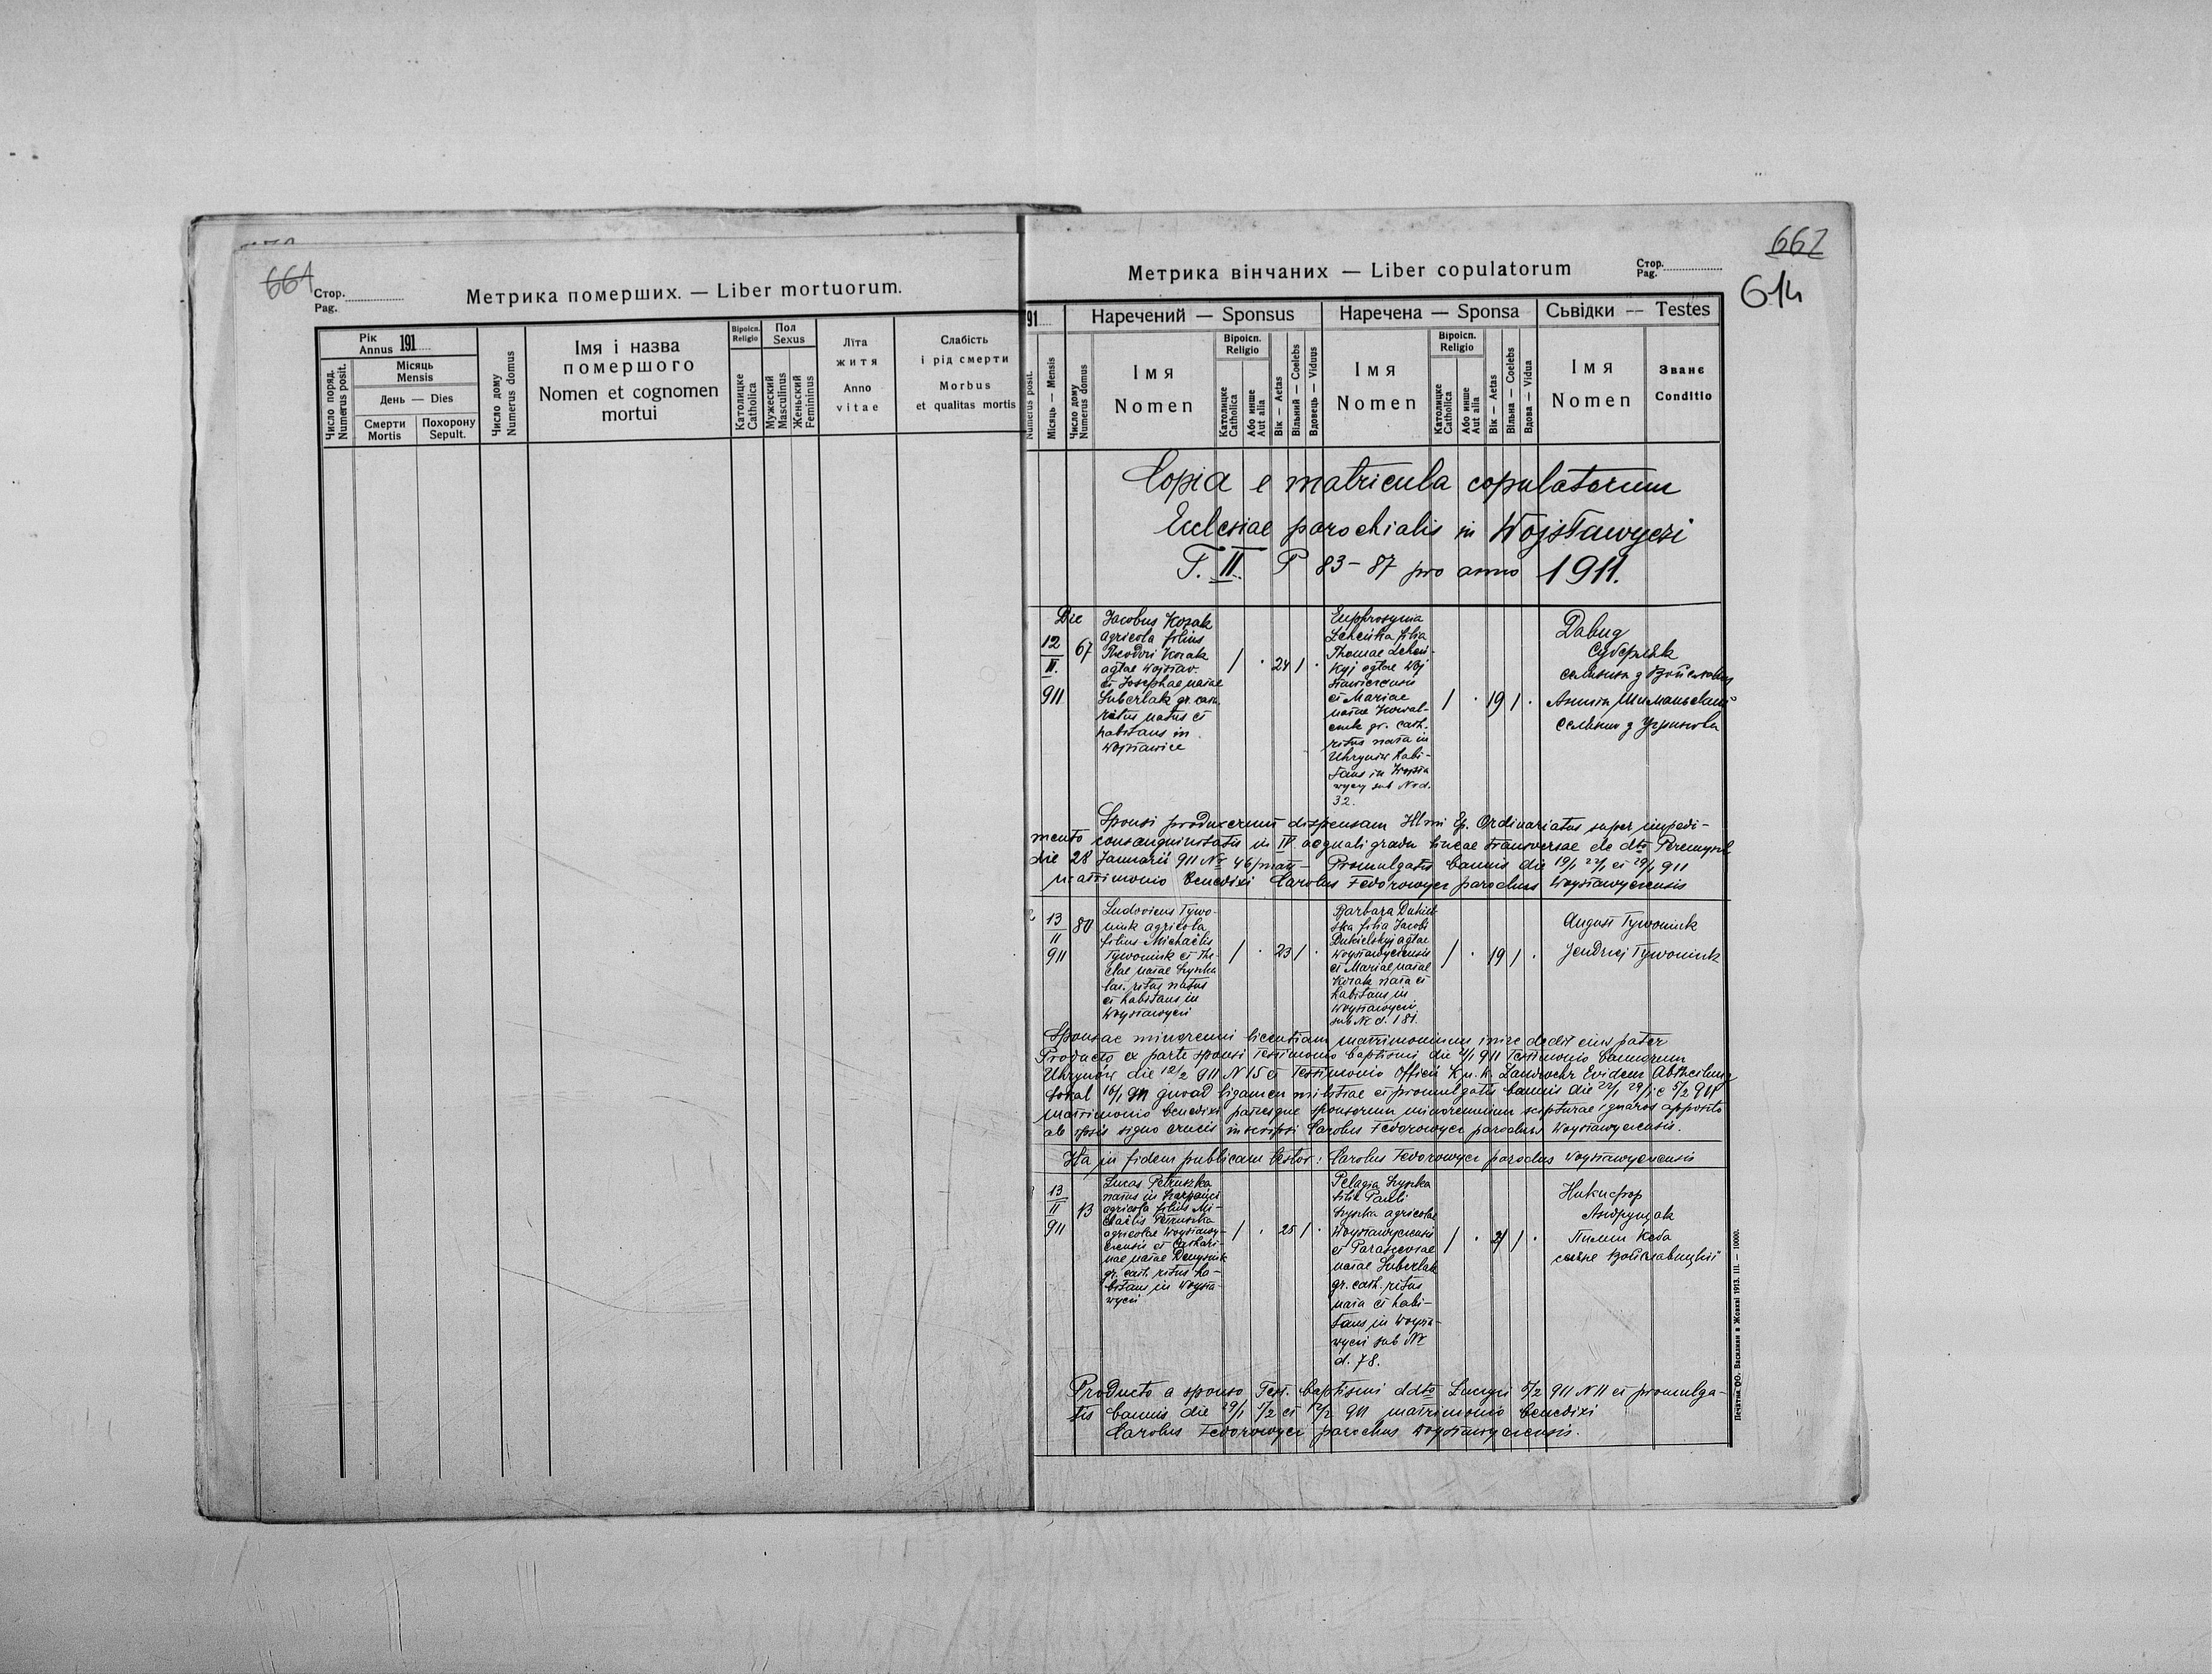 661
Стор.
Pag.
Метрика померших. — Liber mortuorum.
Рік
Annus 191
Число поряд.
Numerus posit.
Місяць
Mensis
День — Dies
Смерти
Mortis
Похорону
Sepult.
Число дому
Numerus domus
Імя і назва
помершого
Nomen et cognomen
mortui
Віроісп.
Religio
Католицке
Catholica
Пол
Sexus
Мужеский
Masculinus
Женьский
Femininus
Літа
житя
Anno
vitae
Слабість
і рід смерти
Morbus
et qualitas mortis
662
614
Метрика вінчаних — Liber copulatorum
Стор.
Pag.
91
Numerus posit.
Місяць — Mensis
Число дому
Numerus domus
Наречений — Sponsus
Імя
Nomen
Віроісп.
Religio
Католицке
Catholica
Або инше
Aut alia
Вік — Aetas
Вільний — Coelebs
Вдовець — Viduus
Наречена — Sponsa
Імя
Nomen
Віроісп.
Religio
Католицке
Catholica
Або инше
Aut alia
Вік — Aetas
Вільна — Coelebs
Вдова — Vidua
Сьвідки — Testes
Імя
Nomen
Званє
Conditio
Copia e matricula copulatorum
Ecclesiae parochialis in Wojsławyczi
T. II P 83-87 pro anno 1911.
Die
12
II.
911
67
Jacobus Kozak
agricola filius
Theodori Kozak
agtae Wojsław.
et Josephae natae
Suberlak gr. cath.
ritus natus et
habitans in
Wojsławice
1 · 24 1 ·
Euphrosynia
filia
Thomae
kyj agtae Woj
sławicensis
et Mariae
natae Kowal-
czuk gr. cath.
ritus nata in
Uhrynów habi-
tans in Wojsła
wycy sub No d.
32.
1 · 19 1 ·
Давид
Суберляк
селянин з
селянин з Угринова
Sponsi produxerunt dispensam Illmi Ep. Ordinariatus super impedi-
mento consanguinitatis in IV aequali gradu lineae transversae de dto Peremyshl
die 28 Januarii 911 No 46/matr— Promulgatis bannis die 19/1 22/1 et 29/1 911
matrimonio benedixi Carolus Fedorowycz parochus Woysławycensis
13
II
911
80
Ludovicus Tywo-
niuk agricola
filius Michaëlis
Tywoniuk et The-
clae natae Szyszka
lat. ritus natus
et habitans in
Woysławyczi
1 · 23 1 ·
Barbara Dukiel-
ska filia Jacobi
Dukielskyj agtae
Woysławycensis
et Mariae natae
Kozak nata et
habitans in
Woysławyczi
sub No d. 181.
1 · 19 1 ·
August Tywoniuk
Jendrzej Tywoniuk
Sponsae minorenni licentiam matrimonium inire dedit eius pater
Producto ex parte sponsi testimonio baptismi die 4/1 911 testimonio bannorum
Uhrynów die 12/2 911 N 15 et testimonio Officii K. u. K. Landwehr Evidenz Abtheilung
Sokal 16/1 911 quoad ligamen militiae et promulgatis bannis die 22/1 29/1 e 5/2 911
matrimonio benedixi patresque sponsorum minorennium scripturae ignaros apposito
ab ipsis signo crucis inscripsi Carolus Fedorowycz parochus Woysławycensis.
Ita in fidem publicam testor: Carolus Fedorowycz parochus Woysławycensis
13
II
911
13
Lucas Petruszka
natus in
agricola filius Mi-
chaëlis Petruszka
agricolae Woysławy-
czensis et Cathari-
nae natae
gr. cath. ritus ha-
bitans in Woysła-
wyczi
1 · 25 1 ·
Pelagia Szyszka
filia Pauli
Szyszka agricolae
Woysławycensis
et Parasceviae
natae Suberlak
gr. cath. ritus
nata et habi-
tans in Woysła-
wyczi sub No
d. 78.
1 · 21 1 ·
Никифор
Андрущак
Пилип Каба
Producto a sponso Test. baptismi ddto 5/2 911 N 11 et promulga-
tis bannis die 29/1 5/2 et 12/2 911 matrimonio benedixi
Carolus Fedorowycz parochus Woysławycensis.
Печатня ОО. Василиян в Жовкві 1913. III. — 10000.